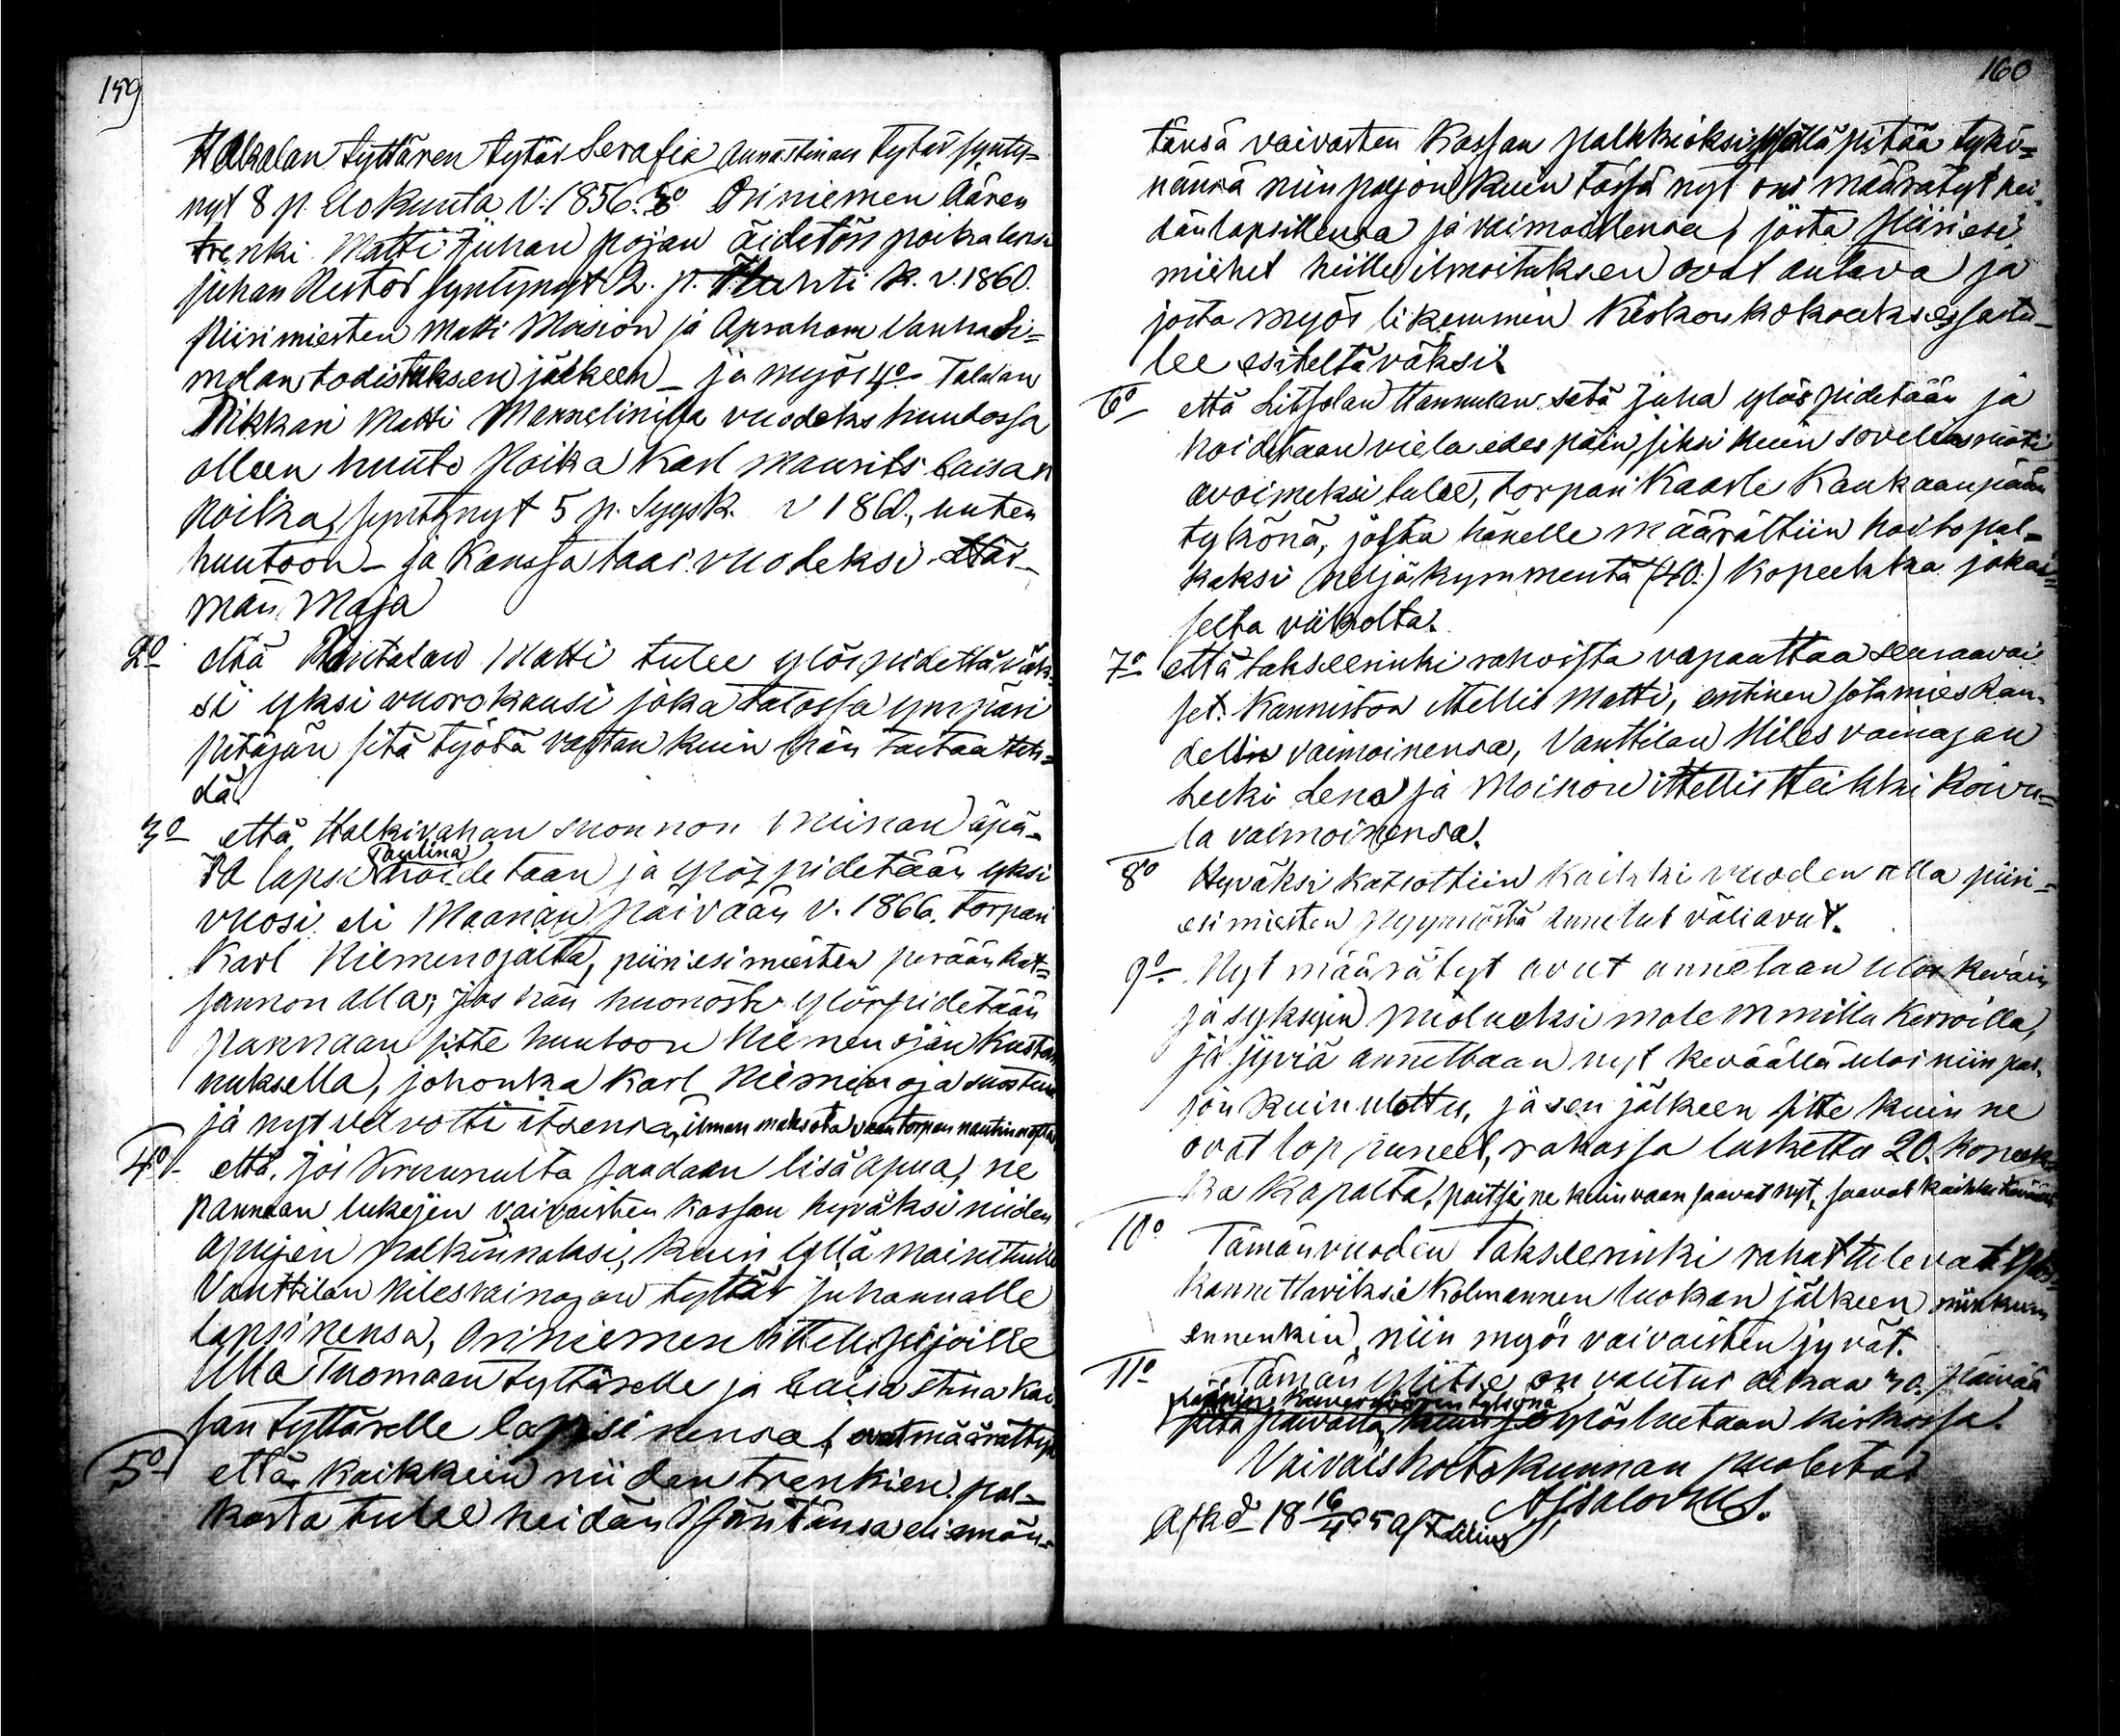 159
Hakalan tyttären tytär Serafia Annastinan tytär synty-
nyt 8 p. Elokuuta v: 1856. 3o Oriniemen Äären
trenki Matti Juhan pojan äidetön poika lapsi
Juhan Nestor syntynyt 2. p. Huhti k. v. 1860.
Piirimiesten Matti Moision ja Apraham Vanha Si-
molan todistuksen jälkeen – ja myös 4o Talolan
Nikkari Matti Mannelinilla vuodeks huudossa
olleen huuto poika Karl Maurits Caisan
poika, syntynyt 5 p. Syysk. v 1860, uuten
huutoon – ja kanssa taas vuodeksi
män Maja
2o että Rantalan Matti tulee ylöspidettäväk-
si yksi vuorokausi joka talossa ympäri
pitäjän sitä työtä vastan kuin hän taitaa teh-
dä.
3o että Halkivahan Suonnon Miinan äpä-
rä lapsi Paulina hoidetaan ja ylöspidetään yksi
vuosi eli Maarian päivään v. 1866. torpari
Karl Niemenojalta, piiriesimiesten perään kat-
sannon alla; jos hän huonoste ylöspidetään
pannaan sitte huutoon Niemenojan kustan
nuksella, johonka Karl Niemenoja suostuu
ja nyt velvotti itsensä, ilman maksota vaan torpan nautinnosta
4o – että, jos Kruunulta saadaan lisä apua, ne
pannaan lukejen vaivaisten kassan hyväksi niiden
apujen palkinnoksi, kuin yllä mainituille
Vanttilan Nilesvainajan tyttär Juhannalle
lapsinensa, Oriniemen ittellispijoille
Ulla Tuomaan tyttärelle ja Caisa Stina Kai
san tyttärelle lapsinensa, ovat määrättyt
5o että kaikkein niiden trenkien pal-
kasta tulee heidän Isäntänsä eli emän-
160
tänsä vaivasten kassan palkkioksi sisällä pitää tykö-
nänsä niin paljon kuin tässä nyt on määrätyt hei-
dän lapsillensa ja vaimoillensa, josta piiri esi
miehet heille ilmoituksen ovat antava ja
josta myös likemmin Kirkon kokouksessa tu-
lee esiteltäväksi.
6o että Liitsolan Hannulan setä Juha ylös pidetään ja
hoidetaan vielä edes päin, siksi kuin sovelias ruoti
avoimeksi tulee, torpari Kaarle Kankaanpään
tykönä, josta hänelle määrättiin hoitopal-
kaksi neljäkymmentä (40.) kopeekkaa jokai-
selta viikolta.
7o että takseerinki rahoista vapauttaa seuraavai
set. Kanniston ittellis Matti, entinen sotamies Ran-
delin vaimoinensa, Vanttilan Niles vainajan
leski Lena ja Moision ittellis Heikki Koivu-
la vaimoinensa.
8o Hyväksi katsottiin kaikki vuoden alla piiri-
esimiesten pyynnöstä annetut väliavut.
9o – Nyt määrätyt avut annetaan ulos keväin
ja syksyin puolueksi molemmilla kerroilla,
ja jyviä annettaan nyt keväällä ulos niin pal-
jon kuin ulottu, ja sen jälkeen sitte kuin ne
ovat loppuneet, rahassa laskettu 20. kopeek-
ka kapalta, paitsi, ne kuin vaan saavat nyt, saavat kaikki keväällä
10o Tämän vuoden Takseerinki rahat tulevat ylös-
kannettaviksi kolmannen luokan jälkeen niinkuin
ennenkin, niin myös vaivaisten jyvät.
11o Tämän ylitse on valitus aikaa 30. päivää
Läänin Kuvernöörin tykönä
siitä päivästä, kuin se ylösluetaan kirkossa.
Vaivaishoitokunnan puolesta:
Afkd 18 16/4 65 af F delius
AfSalovius.